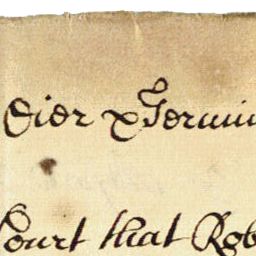 Dier x Termin
Court that Rob